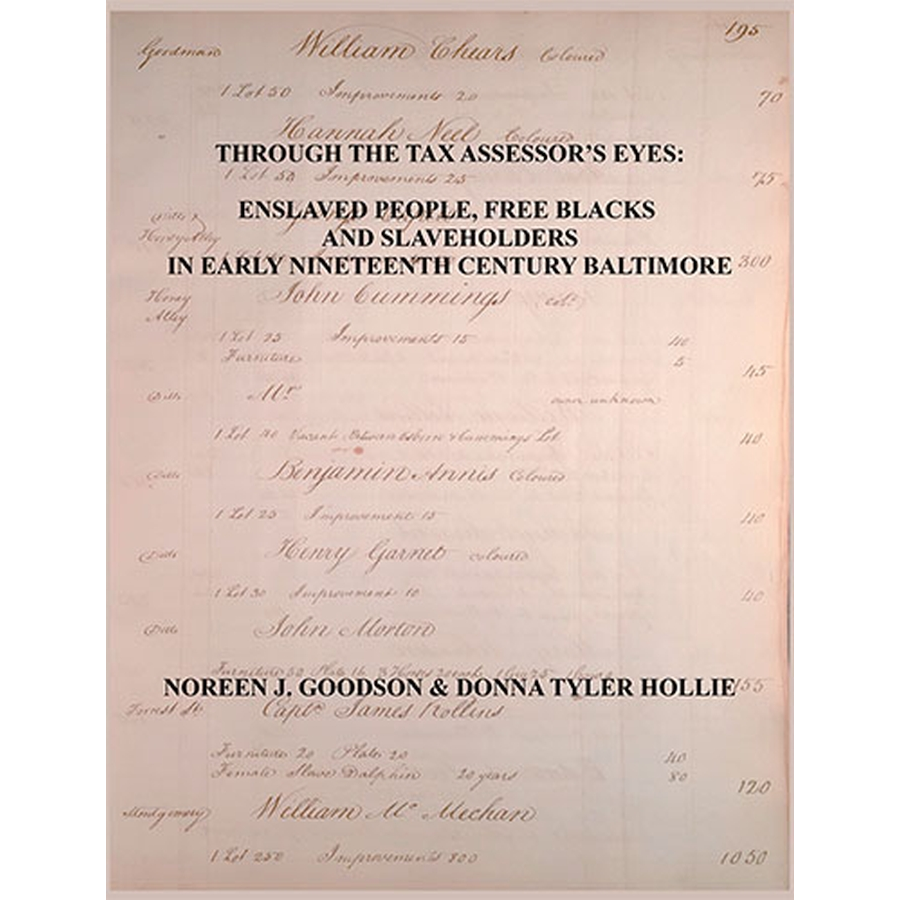 195
Goodman William Chears Coloured
1 Lot 50 Improvements 20 70
Hannah Neel Coloured
THROUGH THE TAX ASSESSOR'S EYES:
1 Lot 50 Improvements 25 75
ENSLAVED PEOPLE, FREE BLACKS
AND SLAVEHOLDERS
IN EARLY NINETEENTH CENTURY BALTIMORE 300
Honey John Cummings col.d
Alley
1 Lot 25 Improvements 15 40
Furniture 5
45
Ditto Mr own unknown
1 Lot 40 Vacant Between Osborn & Cummings Lot 40
Ditto Benjamin Annis Coloured
1 Lot 25 Improvement 15 40
Ditto Henry Garnet coloured
1 Lot 30 Improvement 10 40
Ditto John Morton
Furniture 50 Plate 16 155
NOREEN J. GOODSON & DONNA TYLER HOLLIE
Forrest St. Capt. James Rollins
Furniture 20 Plate 20 40
Female Slave Dalphin 20 years 80
120
Montgomery William Mc Mechan
1 Lot 250 Improvements 800 1050